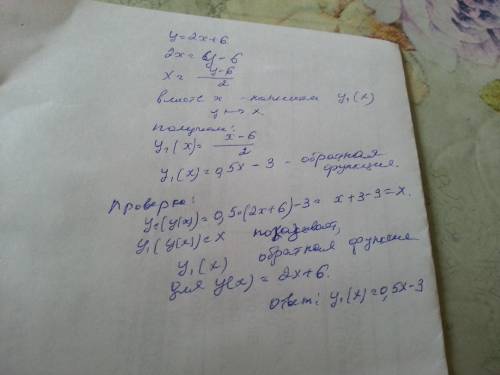 y=2x+6
2x= y-6
x= y-6/2
вместо x - напишем y₁(x)
y ↦ x.
получим:
y₁(x)= x-6/2
y₁(x)=0,5x-3 - обратная
функция.
Проверка:
y₁(y(x))=0,5·(2x+6)-3= x+3-3=x.
y₁(y(x))=x показывает,
y₁(x) обратная функция
для y(x)=2x+6.
Ответ: y₁(x)=0,5x-3